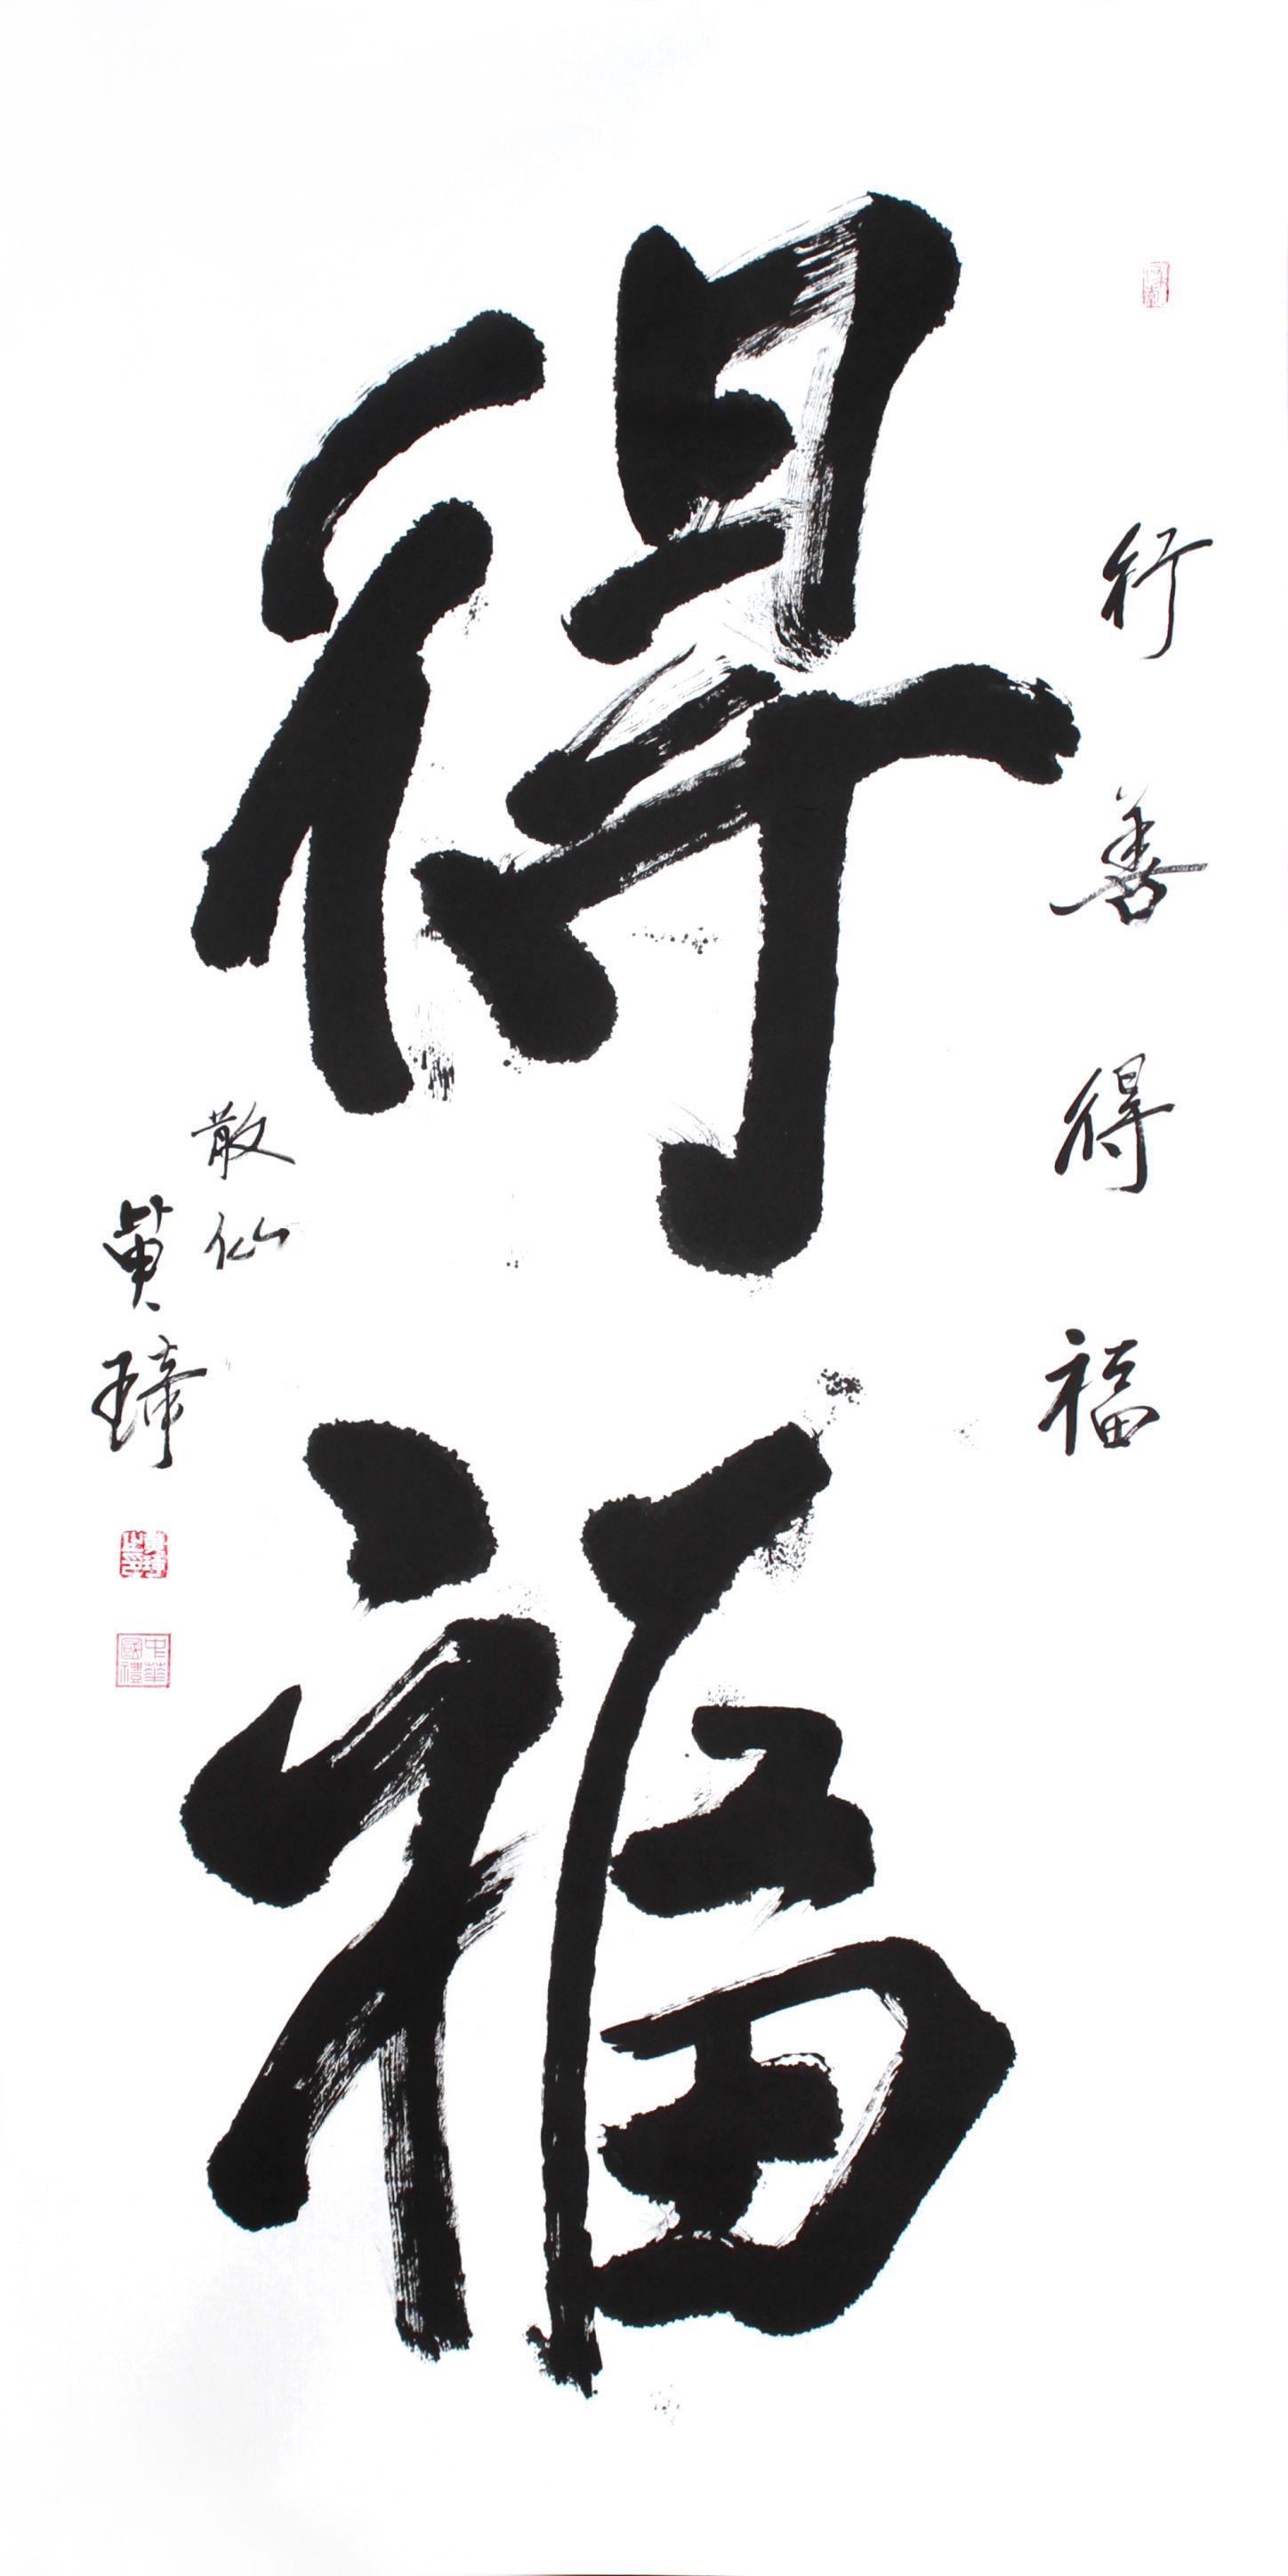 行善得福
得福
散仙
黄琗
中華國禮